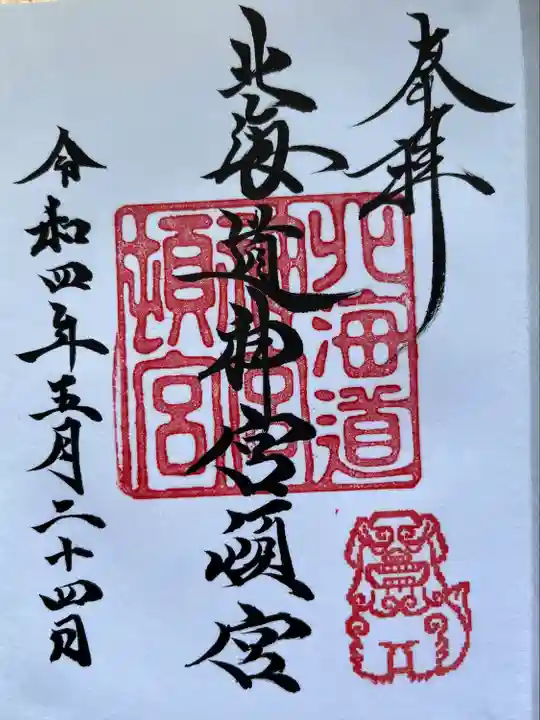 奉拝
北海道神宮頓宮
令和四年五月二十四日
北海道
神宮
頓宮